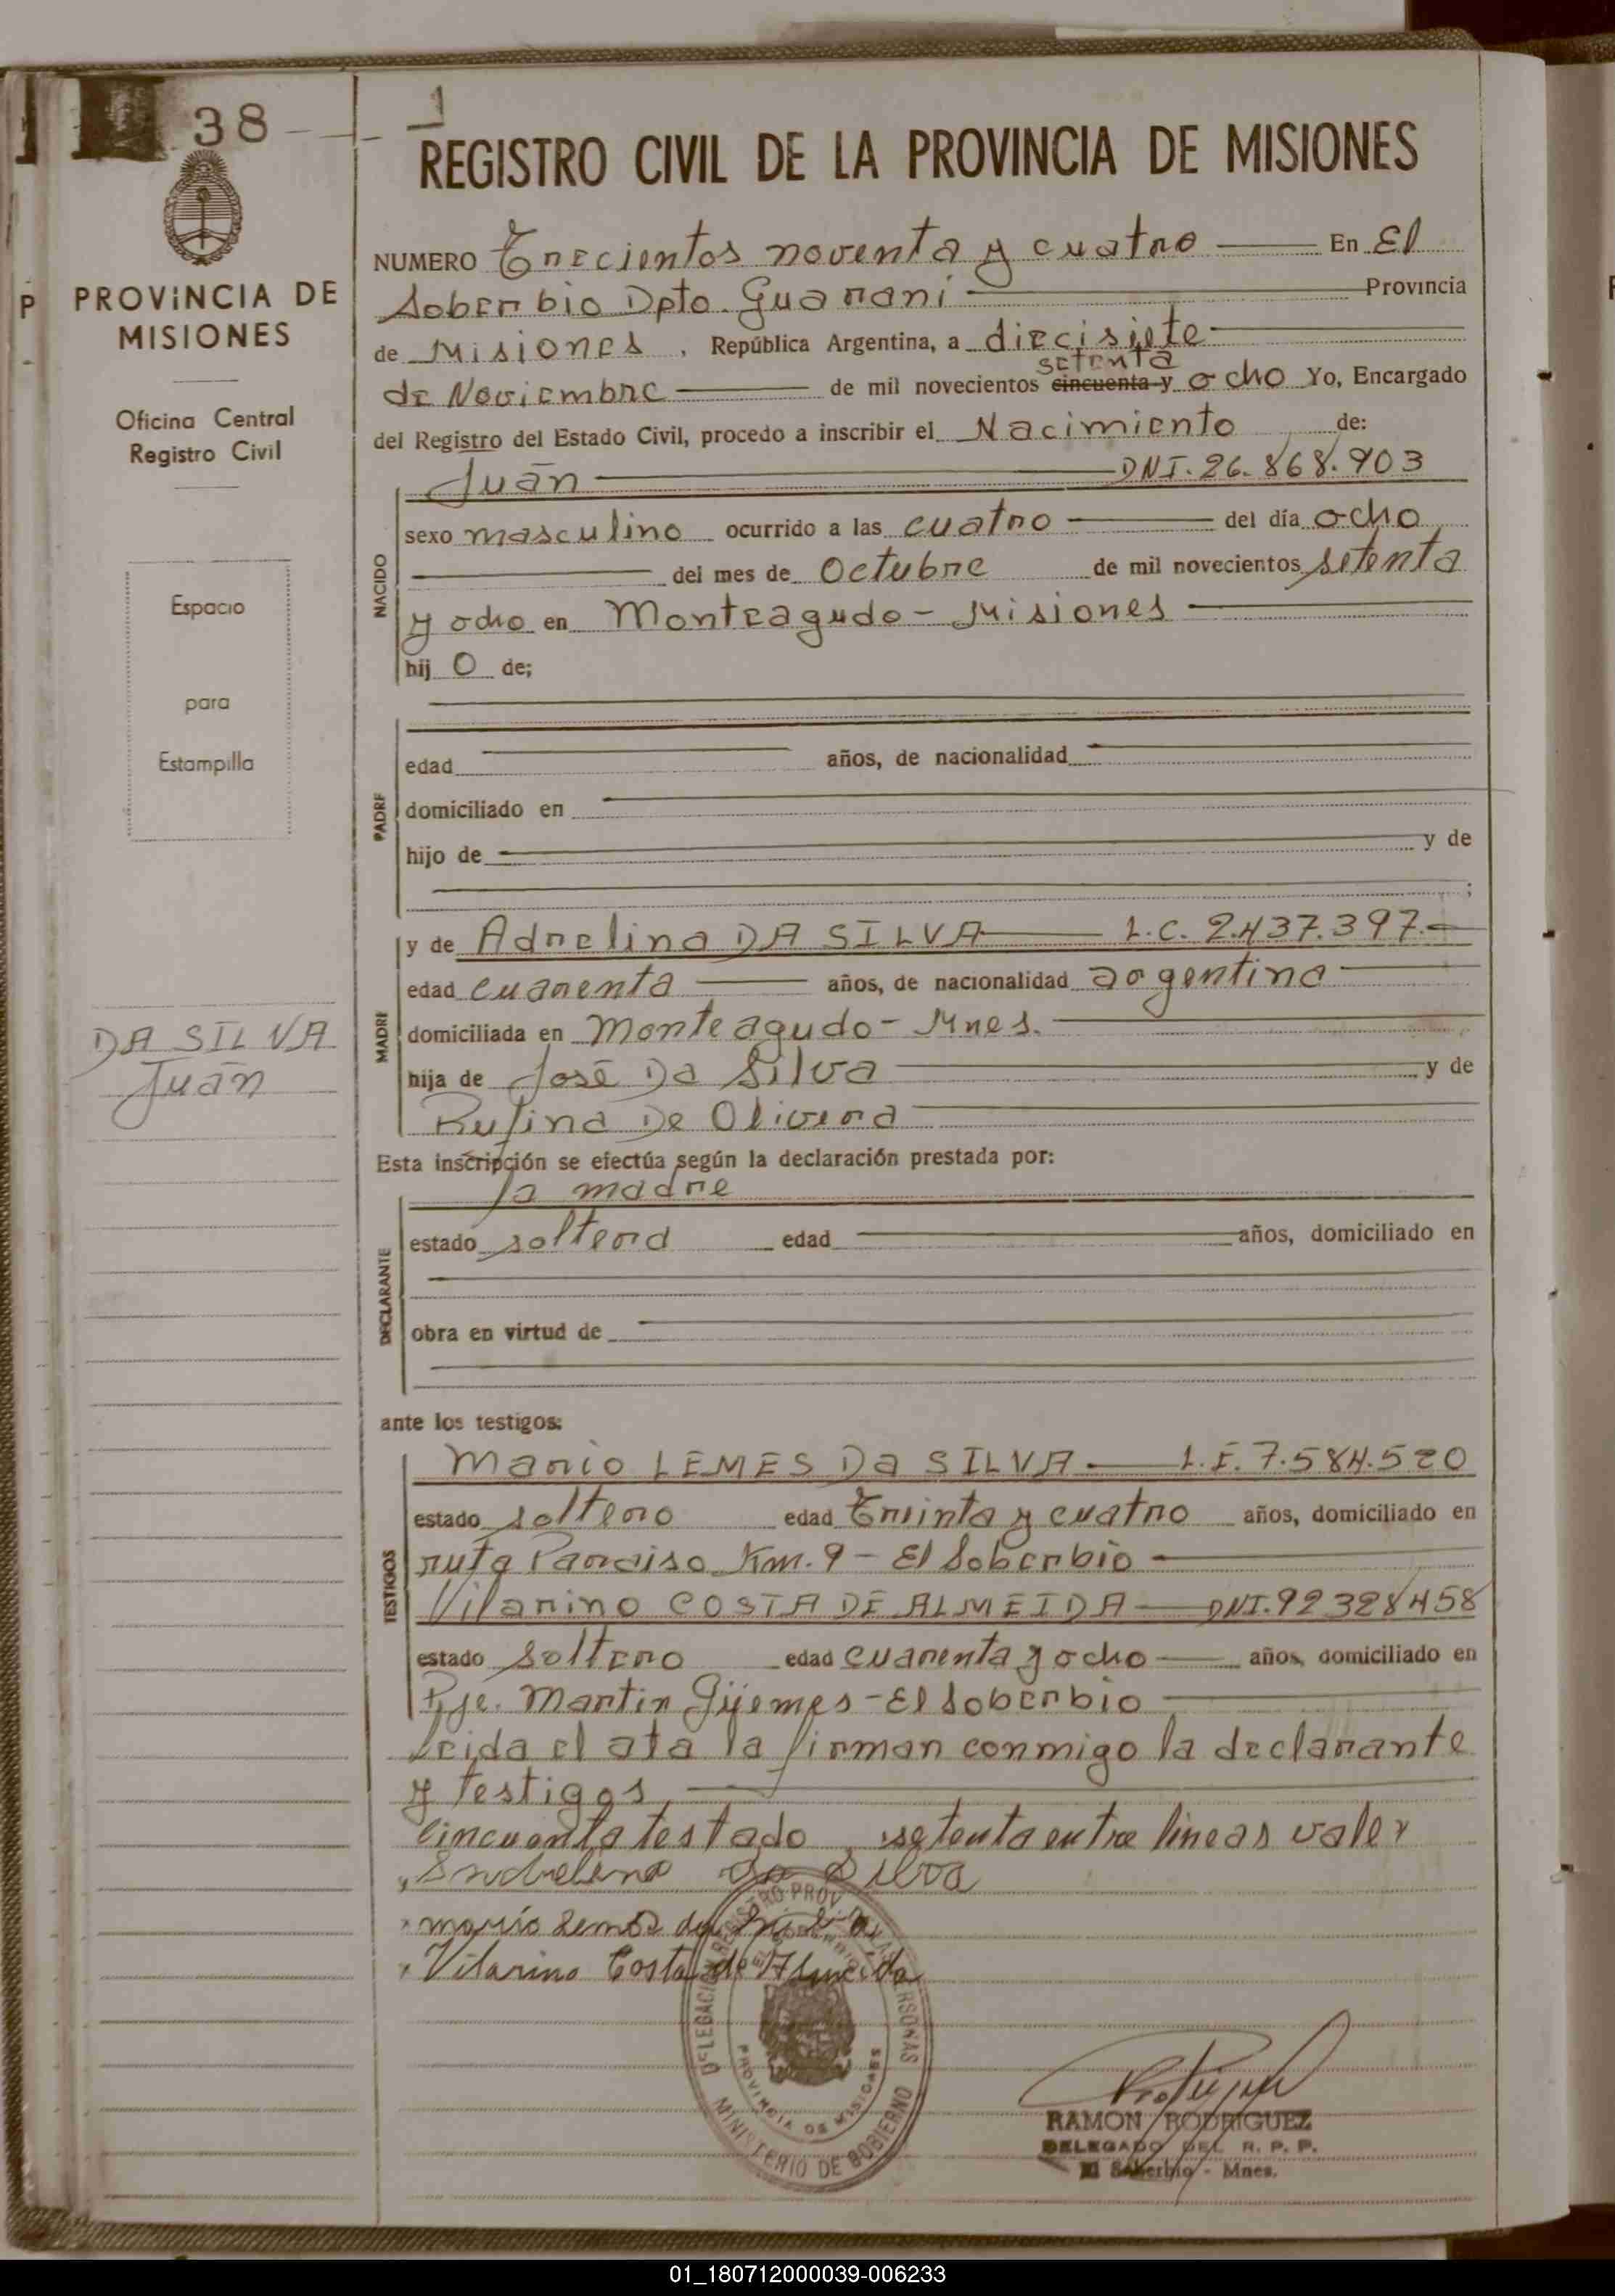 38
1
REGISTRO CIVIL DE LA PROVINCIA DE MISIONES
PROVINCIA DE
MISIONES
Oficina Central
Registro Civil
Espacio
para
Estampilla
DA SILVA
Juan
NUMERO Trecientos noventa y cuatro En El
Soberbio Dpto. Guarani Provincia
de Misiones, República Argentina, a diecisiete
setenta
de Noviembre de mil novecientos cincuenta y ocho Yo, Encargado
del Registro del Estado Civil, procedo a inscribir el Nacimiento de:
Juan DNI. 26.868.903
NACIDO
sexo masculino ocurrido a las cuatro del día ocho
del mes de Octubre de mil novecientos setenta
y ocho en Monteagudo - Misiones
hij o de;
PADRE
edad años, de nacionalidad
domiciliado en
hijo de y de
;
MADRE
y de Adrelina DA SILVA L.C. 2.437.397.-
edad cuarenta años, de nacionalidad argentina
domiciliada en Monteagudo - Mnes.
hija de José Da Silva y de
Rufina De Olivera
Esta inscripción se efectúa según la declaración prestada por:
la madre
DECLARANTE
estado soltera edad años, domiciliado en
obra en virtud de
ante los testigos:
TESTIGOS
Mario LEMES Da SILVA L.E. 7.584.520
estado soltero edad Treinta y cuatro años, domiciliado en
ruta Paraiso Km. 9 - El Soberbio
Vilarino COSTA DE ALMEIDA DNI. 92328458
estado soltero edad cuarenta y ocho años, domiciliado en
Pje. Martin Güemes - El Soberbio
Leida el ata la firman conmigo la declarante
y testigos
Cincuenta testado, setenta entre lineas vale
da Silva
mario Lemes da Silva
Vilarino Costa de Almeida
DELEGACION REGISTRO PROV. PERSONAS
EL SOBERBIO
PROVINCIA DE MISIONES
MINISTERIO DE GOBIERNO
RAMON RODRIGUEZ
DELEGADO DEL R. P. P.
El Soberbio - Mnes.
01_180712000039-006233